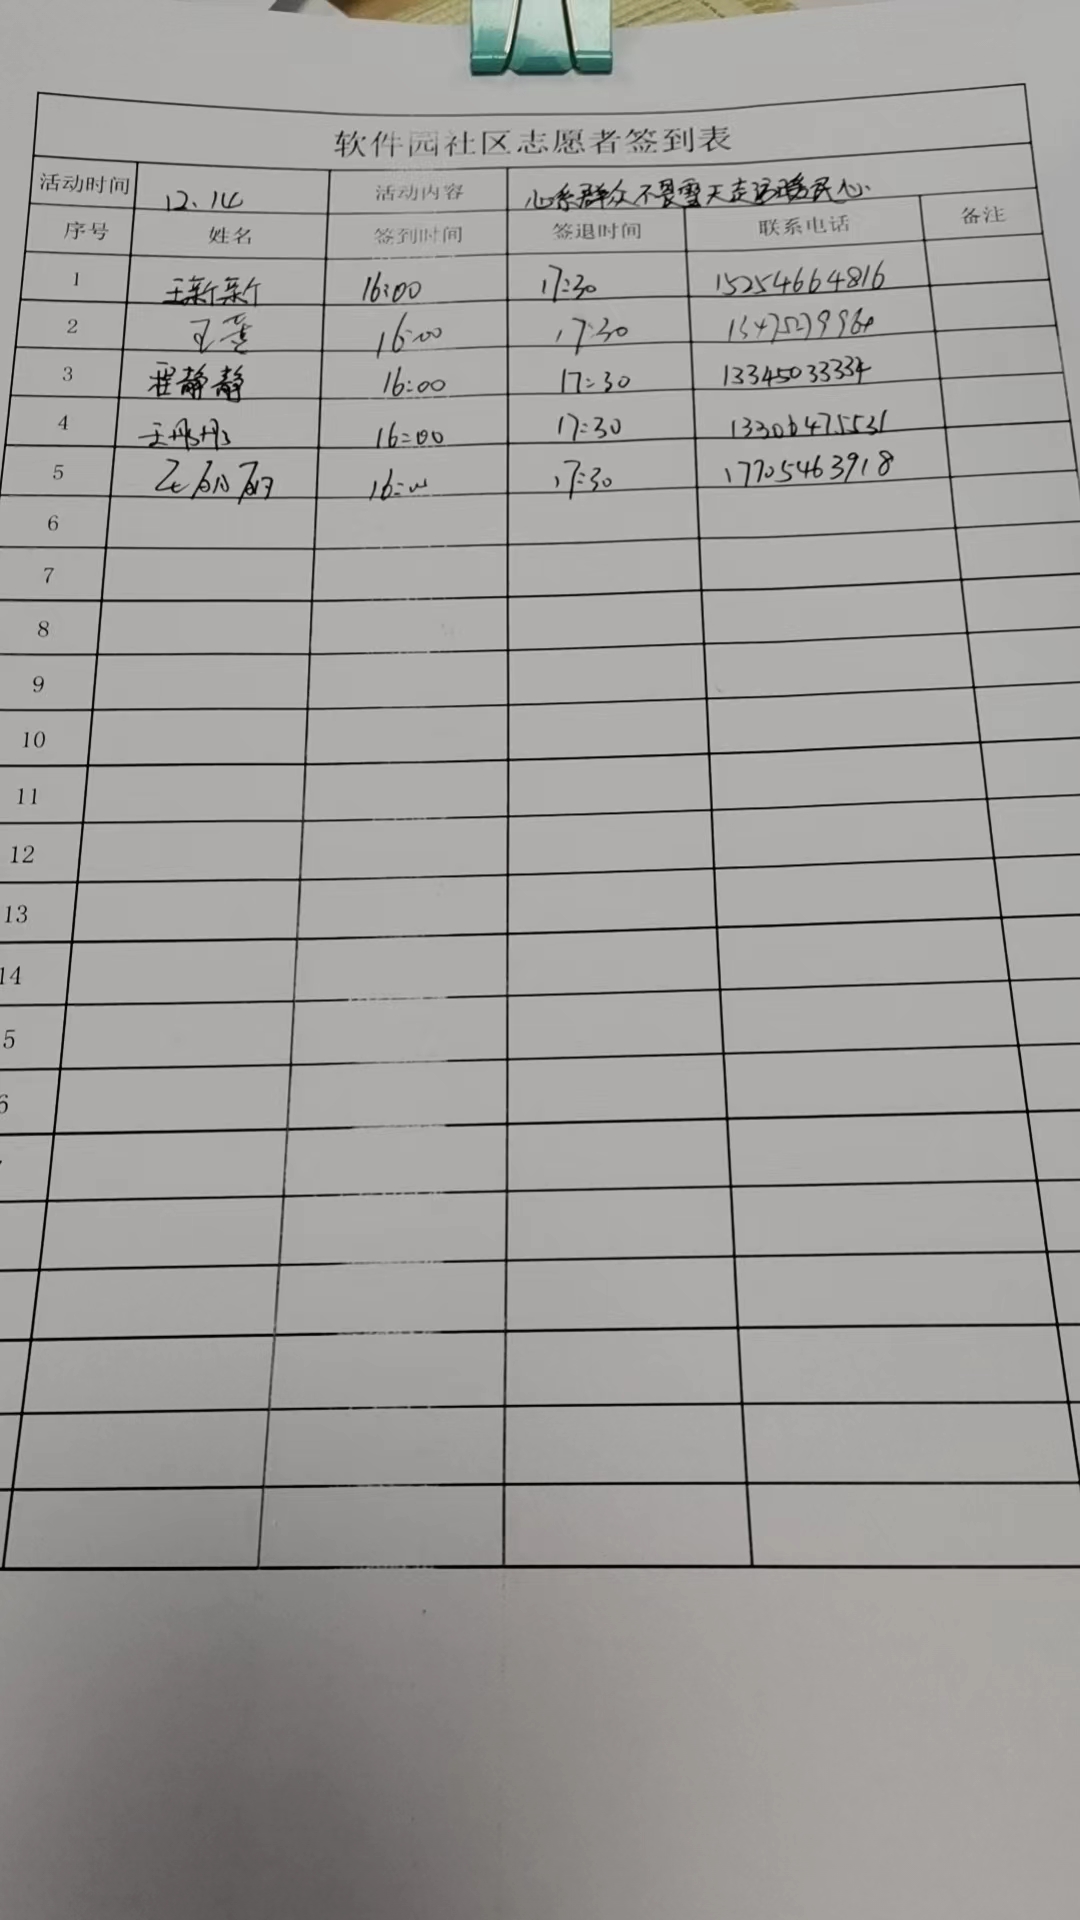 软件园社区志愿者签到表
活动时间 12.14 活动内容 心系群众不畏雪天走访暖民心.
序号 姓名 签到时间 签退时间 联系电话 备注
1 王新新 16:00 17:30 15254664816
2 王 16:00 17:30
3 程静静 16:00 17:30 13345033334
4 王丹丹 16:00 17:30 13306475531
5 16:00 17:30 17705463918
6
7
8
9
10
11
12
13
14
5
6